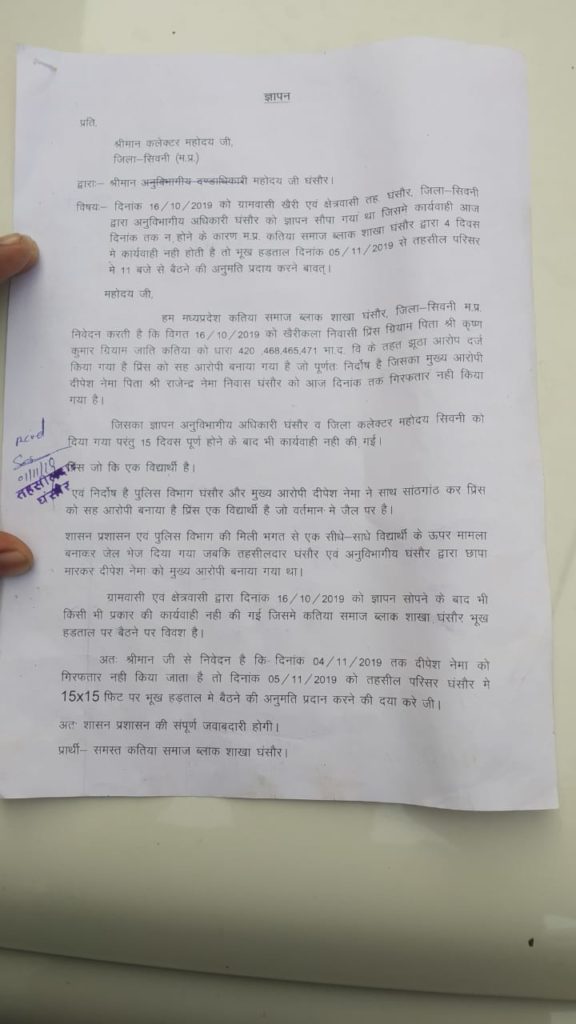 ज्ञापन
प्रति,
श्रीमान कलेक्टर महोदय जी,
जिला–सिवनी (म.प्र.)
द्वाराः– श्रीमान अनुविभागीय दण्डाधिकारी महोदय जी घंसौर।
विषयः– दिनांक 16/10/2019 को ग्रामवासी खैरी एवं क्षेत्रवासी तह. घंसौर, जिला–सिवनी
द्वारा अनुविभागीय अधिकारी घंसौर को ज्ञापन सौपा गया था जिसमे कार्यवाही आज
दिनांक तक न होने के कारण म.प्र. कतिया समाज ब्लाक शाखा घंसौर द्वारा 4 दिवस
मे कार्यवाही नही होती है तो भूख हडताल दिनांक 05/11/2019 से तहसील परिसर
मे 11 बजे से बैठने की अनुमति प्रदाय करने बावत्।
महोदय जी,
हम मध्यप्रदेश कतिया समाज ब्लाक शाखा घंसौर, जिला–सिवनी म.प्र.
निवेदन करती है कि विगत 16/10/2019 को खैरीकला निवासी प्रिंस ग्रियाम पिता श्री कृष्ण
कुमार ग्रियाम जाति कतिया को धारा 420 ,468,465,471 भा.द. वि के तहत झूठा आरोप दर्ज
किया गया है प्रिंस को सह आरोपी बनाया गया है जो पूर्णतः निर्दोष है जिसका मुख्य आरोपी
दीपेश नेमा पिता श्री राजेन्द्र नेमा निवास घंसौर को आज दिनांक तक गिरफतार नही किया
गया है।
जिसका ज्ञापन अनुविभागीय अधिकारी घंसौर व जिला कलेक्टर महोदय सिवनी को
दिया गया परंतु 15 दिवस पूर्ण होने के बाद भी कार्यवाही नही की गई।
प्रिंस जो कि एक विद्यार्थी है।
एवं निर्दोष है पुलिस विभाग घंसौर और मुख्य आरोपी दीपेश नेमा ने साथ सांठगांठ कर प्रिंस
को सह आरोपी बनाया है प्रिंस एक विद्यार्थी है जो वर्तमान मे जैल पर है।
शासन प्रशासन एवं पुलिस विभाग की मिली भगत से एक सीधे–साधे विद्यार्थी के ऊपर मामला
बनाकर जेल भेज दिया गया जबकि तहसीलदार घंसौर एवं अनुविभागीय घंसौर द्वारा छापा
मारकर दीपेश नेमा को मुख्य आरोपी बनाया गया था।
ग्रामवासी एवं क्षेत्रवासी द्वारा दिनांक 16/10/2019 को ज्ञापन सोपने के बाद भी
किसी भी प्रकार की कार्यवाही नही की गई जिसमे कतिया समाज ब्लाक शाखा घंसौर भूख
हडताल पर बैठने पर विवश है।
अतः श्रीमान जी से निवेदन है कि दिनांक 04/11/2019 तक दीपेश नेमा को
गिरफतार नही किया जाता है तो दिनांक 05/11/2019 को तहसील परिसर घंसौर मे
15x15 फिट पर भूख हडताल मे बैठने की अनुमति प्रदान करने की दया करे जी।
अतः शासन प्रशासन की संपूर्ण जवाबदारी होगी।
प्रार्थी– समस्त कतिया समाज ब्लाक शाखा घंसौर।
01/11/19
घंसौर